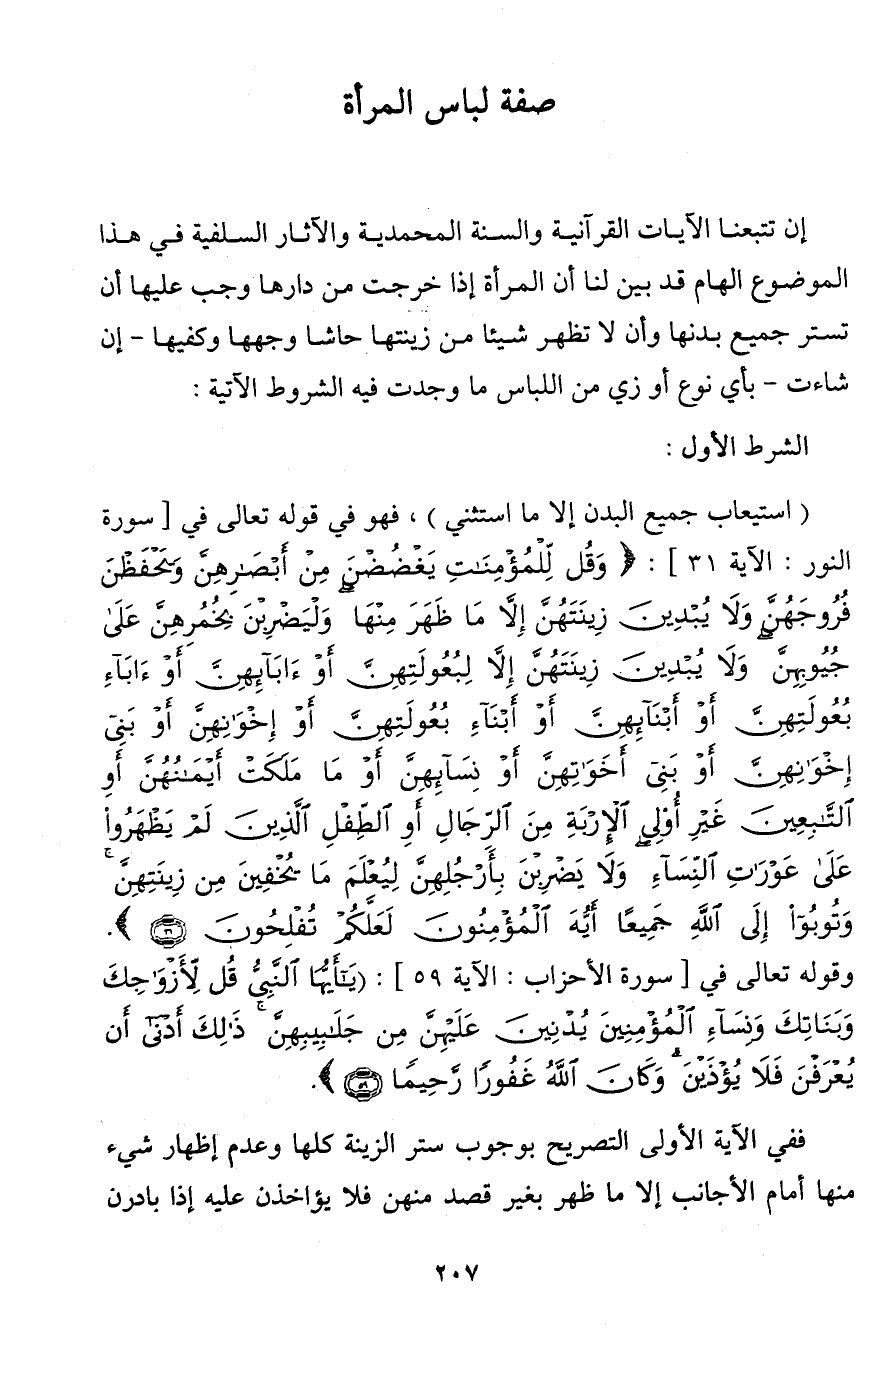 صفة لباس المرأة
إن تتبعنا الآيات القرآنية والسنة المحمدية والآثار السلفية في هذا
الموضوع الهام قد بين لنا أن المرأة إذا خرجت من دارها وجب عليها أن
تستر جميع بدنها وأن لا تظهر شيئا من زينتها حاشا وجهها وكفيها - إن
شاءت - بأي نوع أو زي من اللباس ما وجدت فيه الشروط الآتية :
الشرط الأول :
( استيعاب جميع البدن إلا ما استثني ) ، فهو في قوله تعالى في [ سورة
النور : الآية ٣١ ] : ﴿ وَقُل لِّلْمُؤْمِنَٰتِ يَغْضُضْنَ مِنْ أَبْصَٰرِهِنَّ وَيَحْفَظْنَ
فُرُوجَهُنَّ وَلَا يُبْدِينَ زِينَتَهُنَّ إِلَّا مَا ظَهَرَ مِنْهَا وَلْيَضْرِبْنَ بِخُمُرِهِنَّ عَلَىٰ
جُيُوبِهِنَّ وَلَا يُبْدِينَ زِينَتَهُنَّ إِلَّا لِبُعُولَتِهِنَّ أَوْ ءَابَآئِهِنَّ أَوْ ءَابَآءِ
بُعُولَتِهِنَّ أَوْ أَبْنَآئِهِنَّ أَوْ أَبْنَآءِ بُعُولَتِهِنَّ أَوْ إِخْوَٰنِهِنَّ أَوْ بَنِىٓ
إِخْوَٰنِهِنَّ أَوْ بَنِىٓ أَخَوَٰتِهِنَّ أَوْ نِسَآئِهِنَّ أَوْ مَا مَلَكَتْ أَيْمَٰنُهُنَّ أَوِ
ٱلتَّٰبِعِينَ غَيْرِ أُو۟لِى ٱلْإِرْبَةِ مِنَ ٱلرِّجَالِ أَوِ ٱلطِّفْلِ ٱلَّذِينَ لَمْ يَظْهَرُوا۟
عَلَىٰ عَوْرَٰتِ ٱلنِّسَآءِ وَلَا يَضْرِبْنَ بِأَرْجُلِهِنَّ لِيُعْلَمَ مَا يُخْفِينَ مِن زِينَتِهِنَّ ۚ
وَتُوبُوٓا۟ إِلَى ٱللَّهِ جَمِيعًا أَيُّهَ ٱلْمُؤْمِنُونَ لَعَلَّكُمْ تُفْلِحُونَ ٣١ ﴾.
وقوله تعالى في [ سورة الأحزاب : الآية ٥٩ ] : ( يَٰٓأَيُّهَا ٱلنَّبِىُّ قُل لِّأَزْوَٰجِكَ
وَبَنَاتِكَ وَنِسَآءِ ٱلْمُؤْمِنِينَ يُدْنِينَ عَلَيْهِنَّ مِن جَلَٰبِيبِهِنَّ ۚ ذَٰلِكَ أَدْنَىٰٓ أَن
يُعْرَفْنَ فَلَا يُؤْذَيْنَ وَكَانَ ٱللَّهُ غَفُورًا رَّحِيمًا ٥٩ ﴾.
ففي الآية الأولى التصريح بوجوب ستر الزينة كلها وعدم إظهار شيء
منها أمام الأجانب إلا ما ظهر بغير قصد منهن فلا يؤاخذن عليه إذا بادرن
٢٠٧